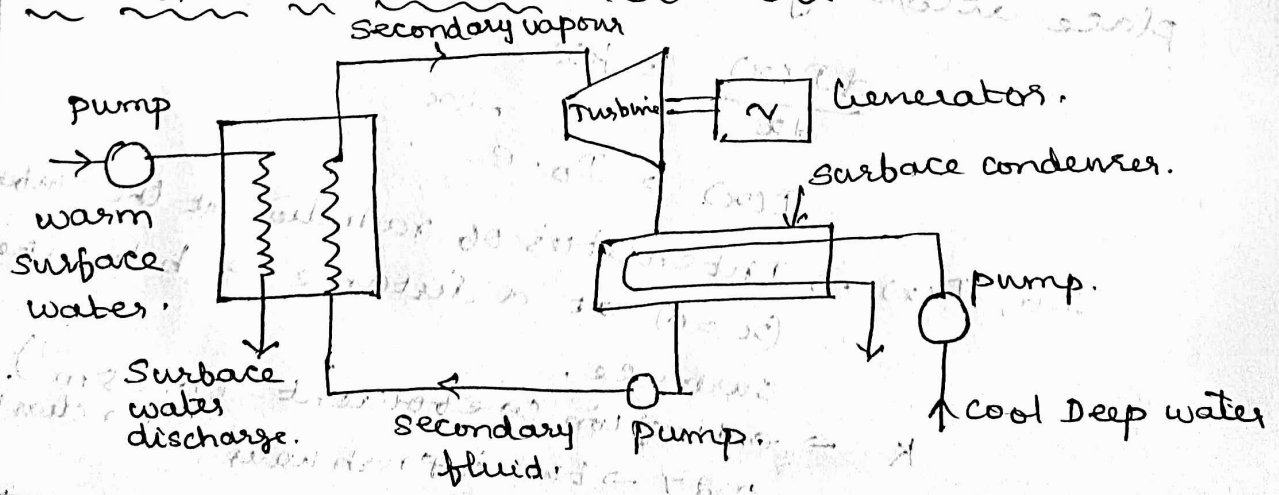 secondary vapour
pump
Turbine
~
Generator.
surbace condenser.
warm
surface
water.
pump.
Surbace
water
discharge.
secondary
fluid.
pump.
cool Deep water